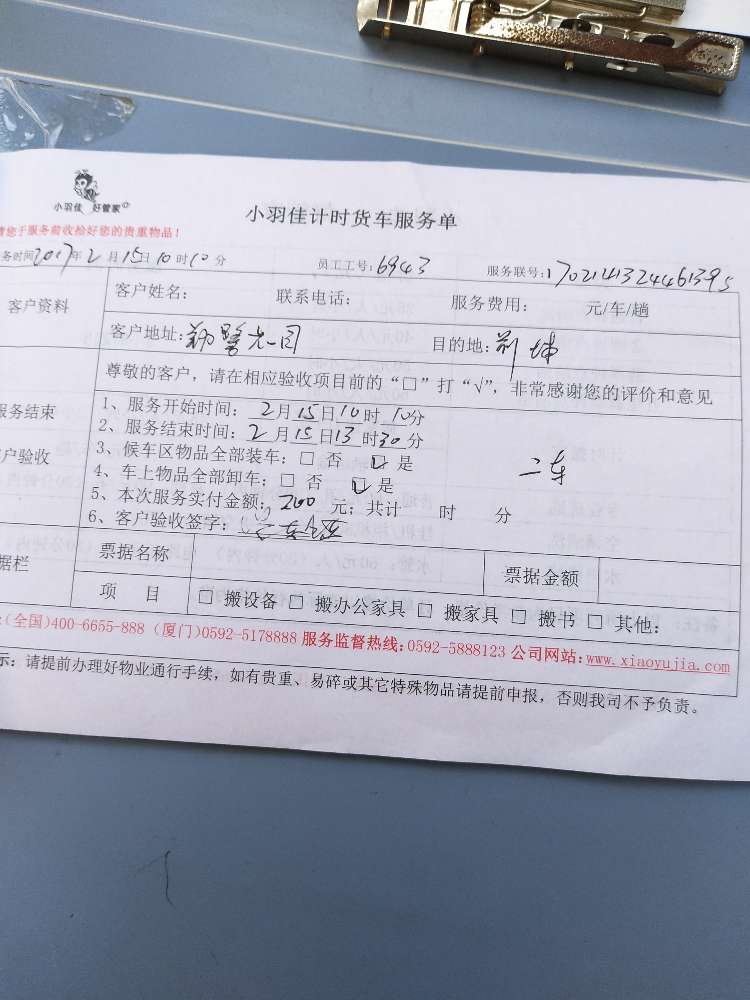 小羽佳 好管家
小羽佳计时货车服务单
请您于服务前收拾好您的贵重物品！
务时间2017年2月15日10时10分 员工工号：6943 服务联号：1702141324461395
客户资料 客户姓名： 联系电话： 服务费用： 元/车/趟
客户地址： 目的地：
尊敬的客户，请在相应验收项目前的“□”打“√”，非常感谢您的评价和意见
服务结束
户验收
1、服务开始时间：2月15日10时10分
2、服务结束时间：2月15日13时30分
3、候车区物品全部装车：□ 否 ☑ 是
二车
4、车上物品全部卸车：□ 否 ☑ 是
5、本次服务实付金额：200元；共计 时 分
6、客户验收签字：
据栏 票据名称 票据金额
项 目 □ 搬设备 □ 搬办公家具 □ 搬家具 □ 搬书 □ 其他：
：(全国)400-6655-888 (厦门)0592-5178888 服务监督热线：0592-5888123 公司网站：www.xiaoyujia.com
示：请提前办理好物业通行手续，如有贵重、易碎或其它特殊物品请提前申报，否则我司不予负责。